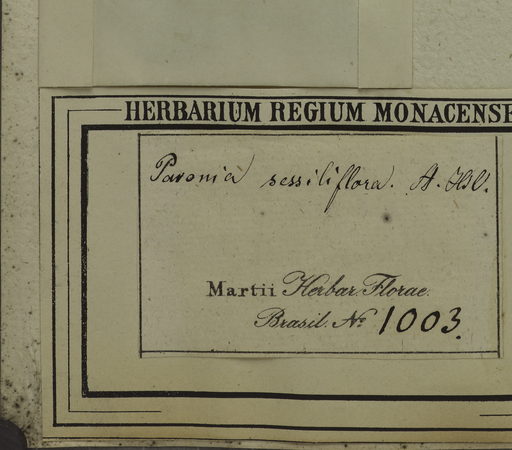 HERBARIUM REGIUM MONACENSE
Pavonia sessiliflora. A. Hil.
Martii Herbar. Florae
Brasil. No 1003.